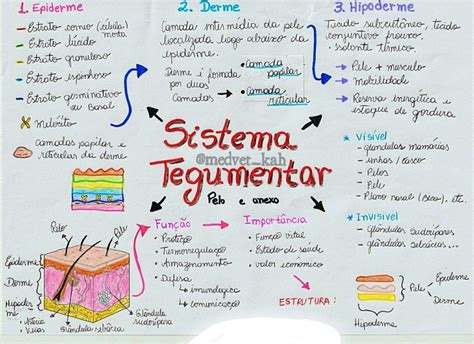 1. Epiderme
Estrato córneo (célula morta
Estrato lúcido
Estrato granuloso
Estrato espinhoso
Estrato germinativo
ou Basal
Melanócito
camadas papilar e
reticular da derme
2. Derme
Camada intermédia da pele
localizada logo abaixo da
epiderme.
Derme é formada
por duas
Camadas
Camada
papilar
camada
reticular
3. Hipoderme
Tecido subcutâneo, tecido
conjuntivo frouxo.
• isolante térmico.
Pele + músculo
mobilidade
Reserva energética e
estoque de gordura
Sistema
@medvet_kah
Tegumentar
Pele e anexo
* Visível
- glândulas mamárias
- unhas / casco
- Pelos
- Pele
- Plano nasal (Bico). etc.
* Invisível
- glândulas sudoríparas
- glândulas sebáceas...
Função
• Proteção
• Termorregulação
• Armazenamento
• Defesa
imunológico
comunicação
Importância
• Função vital
• Estado de saúde
• valor econômico
ESTRUTURA:
Epiderme
Pele
Derme
Pelo
Hipoderme
Pelo
Epiderme
Derme
Hipoderme
Artéria
Veias
Glândula sebácea
Glândula
sudorípara